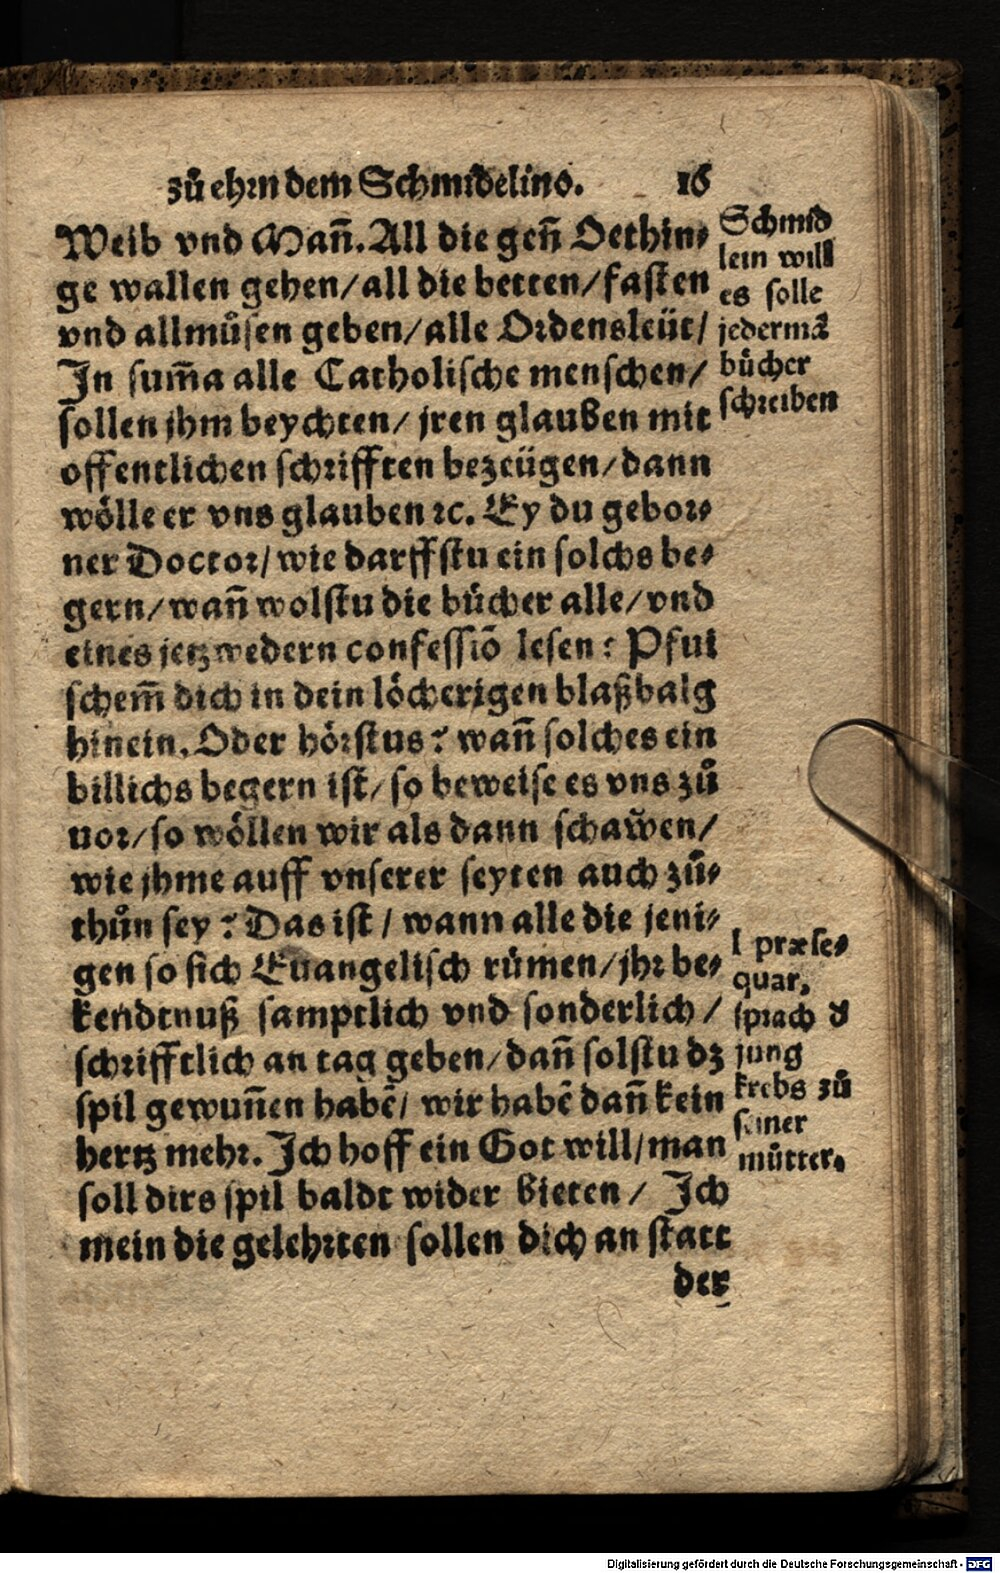 zů ehrn dem Schmidelino. 16
Weib vnd Mañ. All die geñ Oethin-
ge wallen gehen/ all die betten/ fasten
vnd allmůsen geben/ alle Ordensleüt/
In sum̃a alle Catholische menschen/
sollen jhm beychten/ jren glauben mit
offentlichen schrifften bezeügen/ dann
wölle er vns glauben ꝛc. Ey du gebor-
ner Doctor/ wie darffstu ein solchs be-
gern/ wañ wolstu die bücher alle/ vnd
eines jetzwedern confessiõ lesen? Pfui
schem̃ dich in dein löcherigen blaßbalg
hinein. Oder hörstus? wañ solches ein
billichs begern ist/ so beweise es vns zů
uor/ so wöllen wir als dann schaẘen/
wie jhme auff vnserer seyten auch zů-
thůn sey? Das ist/ wann alle die jeni-
gen so sich Euangelisch růmen/ jhr be-
kendtnuß samptlich vnd sonderlich/
schrifftlich an tag geben/ dañ solstu dz
spil gewuñen habẽ/ wir habẽ dañ kein
hertz mehr. Ich hoff ein Got will/ man
soll dirs spil baldt wider bieten/ Ich
mein die gelehrten sollen dich an statt
der
Schmid
lein will
es solle
jedermã
bücher
schreiben
I præse-
quar,
sprach d̕
jung
krebs zů
seiner
můtter.
Digitalisierung gefördert durch die Deutsche Forschungsgemeinschaft - DFG